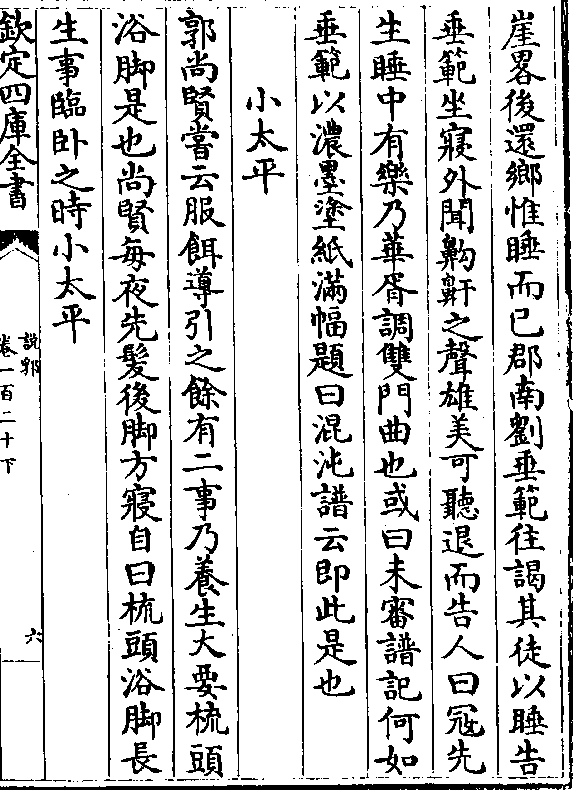 崖畧後還鄉惟睡而已郡南劉垂範往謁其徒以睡告
垂範坐寢外聞齁鼾之聲雄美可聽退而告人曰冦先
生睡中有樂乃華胥調雙門曲也或曰未審譜記何如
垂範以濃墨塗紙滿幅題曰混沌譜云即此是也
小太平
郭尚賢嘗云服餌導引之餘有二事乃養生大要梳頭
浴脚是也尚賢毎夜先髮後脚方寢自曰梳頭浴脚長
生事臨卧之時小太平
欽定四庫全書
說郛
卷一百二十下
六